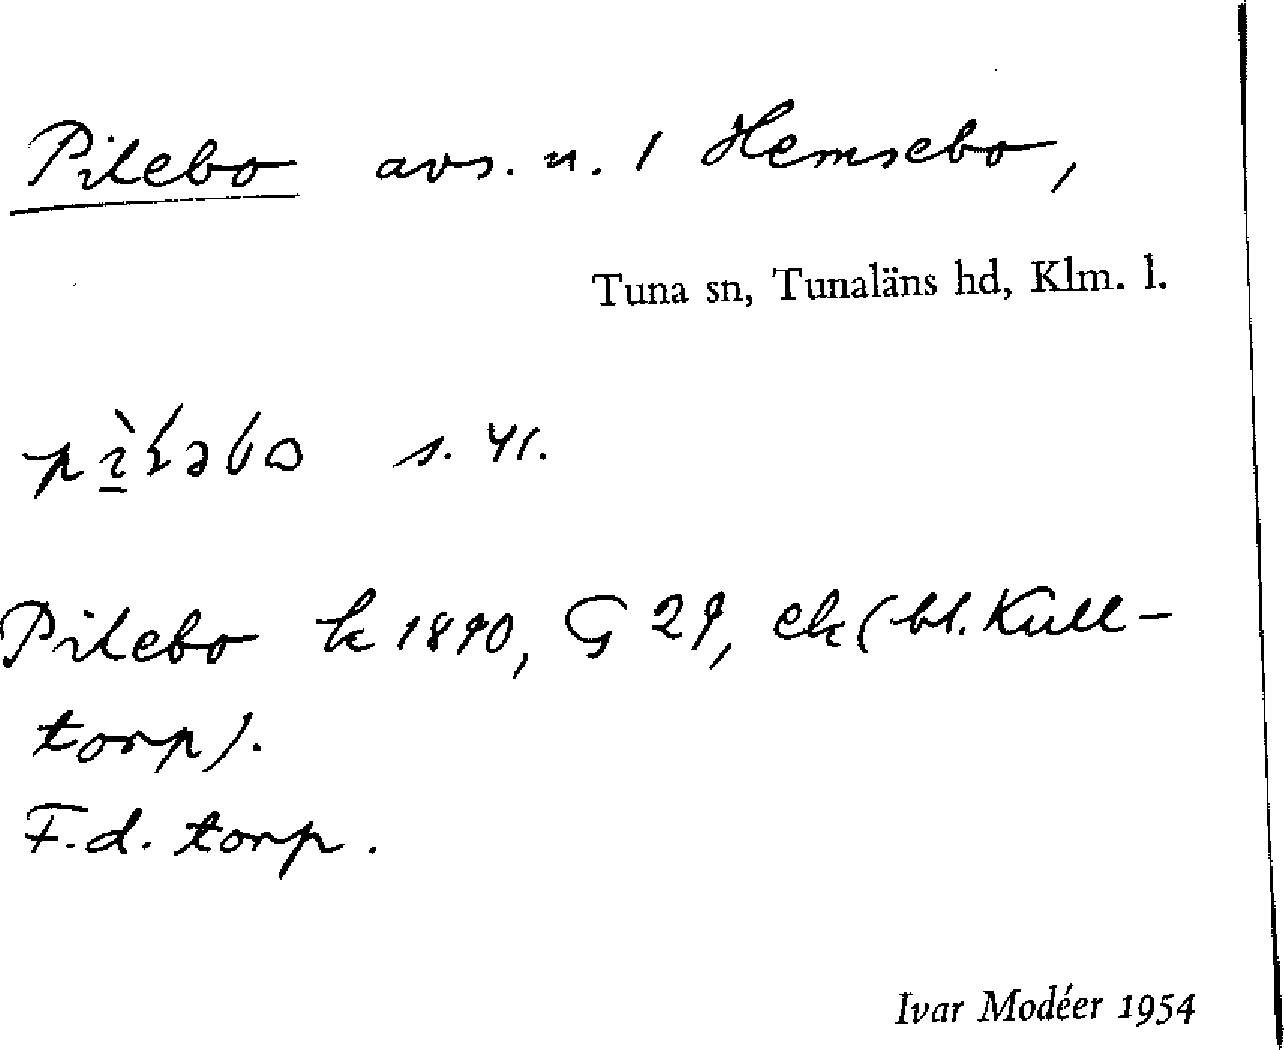 Pilebo avs. u. 1 Hemsebo,
Tuna sn, Tunaläns hd, Klm. l.
s. 41.
Pilebo k 1890, G 29, ek (bl. Kull-
torp).
F.d. torp.
Ivar Modéer 1954